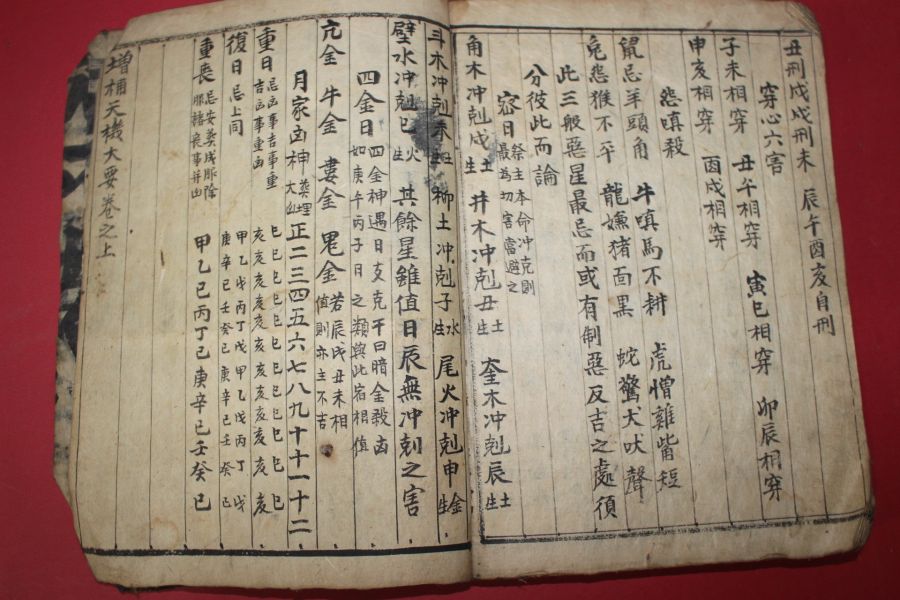 丑刑戌戌刑未 辰午酉亥自刑
穿心六害
子未相穿 丑午相穿 寅巳相穿 卯辰相穿
申亥相穿 酉戌相穿
怨嗔殺
鼠忌羊頭角 牛嗔馬不耕 虎憎雞觜短
兔怨猴不平 龍嫌猪面黑 蛇驚犬吠聲
此三般惡星最忌而或有制惡反吉之處須
分彼此而論
密日 祭主本命冲克則
最為切害當避之
角木冲剋戌土生 井木冲剋丑土生 奎木冲剋辰土生
斗木冲剋未土生 柳土冲剋子水生 尾火冲剋申金生
壁水冲剋巳火生 其餘星雖值日辰無冲剋之害
四金日 四金神遇日支克干曰暗金殺凶
如庚午丙子日之類與此宿相值
亢金 牛金 婁金 鬼金 若辰戌丑未相
值則亦主不吉
月家凶神 葬埋大凶 正二三四五六七八九十十一十二
重日 忌凶事吉事重 巳巳巳巳巳巳巳巳巳巳巳巳
吉凶事重凶 亥亥亥亥亥亥亥亥亥亥亥亥
復日 忌上同 甲乙戊丙丁戊甲乙戊丙丁戊
庚辛巳壬癸巳庚辛巳壬癸巳
重喪 忌安葬成服除
服諸喪事并凶 甲乙巳丙丁巳庚辛巳壬癸巳
增補天機大要卷之上